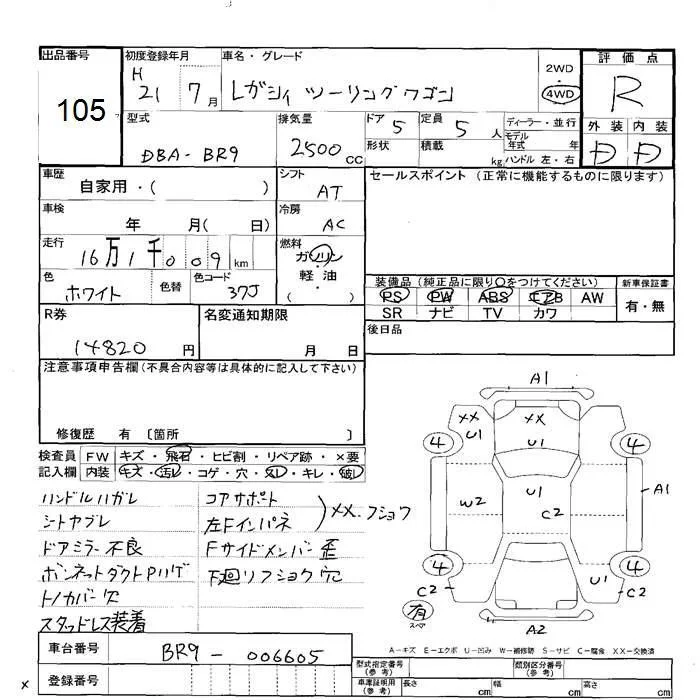 出品番号
105
初度登録年月
H
21 7月
車名・グレード
レガシィ ツーリングワゴン
2WD
・
4WD
評価点
R
型式
DBA-BR9
排気量
2500 CC
ドア 5
形状
定員 5 人
積載 kg
ディーラー・並行
モデル
年式 年
ハンドル 左・右
外装 内装
D D
車歴
自家用・( )
シフト
AT
セールスポイント(正常に機能するものに限ります)
車検
年 月( 日)
冷房
AC
走行
16万1千009km
燃料
ガソリン
・
軽油
( )
色
ホワイト
色替
色コード
37J
装備品(純正品に限り〇をつけてください)
PS PW ABS エアB AW
SR ナビ TV カワ
新車保証書
有・無
R券
14820円
名変通知期限
月 日
後日品
注意事項申告欄(不具合内容等は具体的に記入して下さい)
修復歴 有 〔箇所 〕
検査員
記入欄
FW キズ・飛石・ヒビ割・リペア跡・×要
内装 キズ・汚レ・コゲ・穴・スレ・キレ・破レ
ハンドルハガレ
シートヤブレ
ドアミラー不良
ボンネットダクトPハゲ
トノカバー欠
スタッドレス装着
コアサポート
左Fインパネ
XX.フショウ
Fサイドメンバー歪
下廻リフショク穴
A1
XX
U1
XX
U1
4
4
W2
U1
C2
A1
4
4
C2
U1
C2
有
スペア
A2
A-キズ E-エクボ U-凹み W-補修跡 S-サビ C-腐食 XX-交換済
車台番号
BR9-006605
登録番号
x
型式指定番号
(参考)
類別区分番号
(参考)
車庫証明用
(参考)
長さ cm
幅 cm
高さ cm